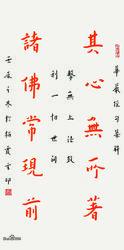 華嚴經句集聯
其心無所著
無上法
利一切世間
諸佛常現前
壬辰之冬
Baidu百科